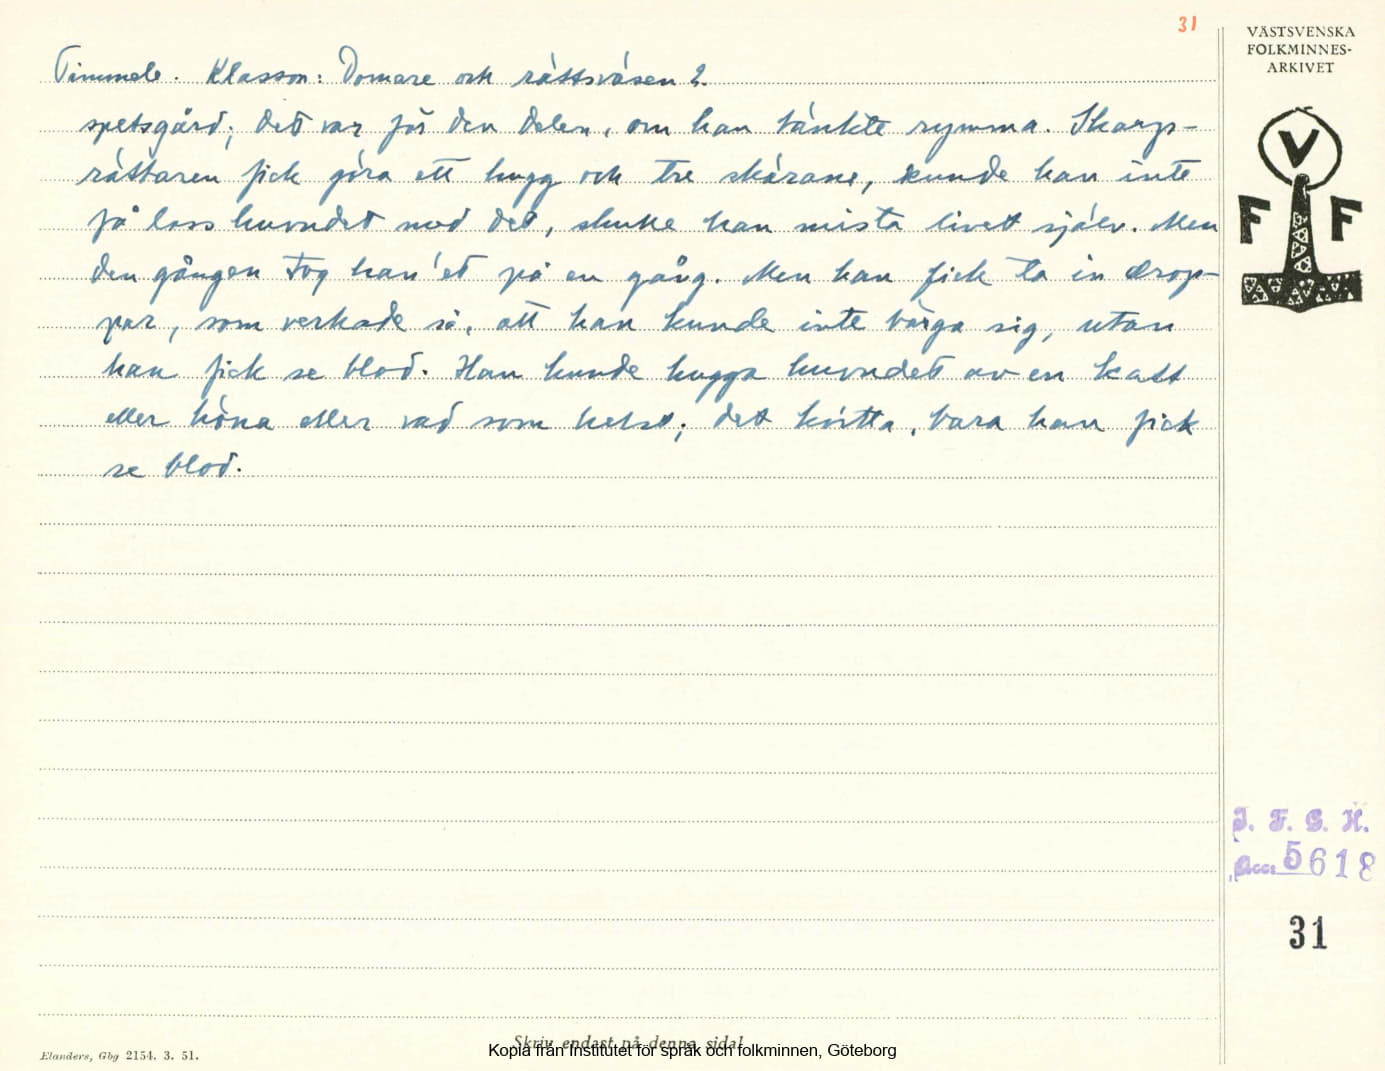 31
VÄSTSVENSKA
FOLKMINNES-
ARKIVET
Timmele. Klasson: Domare och rättsväsen 2.
spetsgård; det var för den delen, om han tänkte rymma. Skarp-
rättaren fick göra ett hugg och tre skärane, kunde han inte
få loss huvudet med det, skulle han mista livet själv. Men
den gången tog han'et på en gång. Men han fick ta in drop-
par, som verkade så, att han kunde inte bärga sig, utan
han fick se blod. Han kunde hugga huvudet av en katt
eller höna eller vad som helst; det kvitta, bara han fick
se blod.
V
F F
I. F. G. H.
Acc. 5618
31
Skriv endast på denna sida!
Elanders, Gbg 2154. 3. 51.
Kopia från Institutet för språk och folkminnen, Göteborg